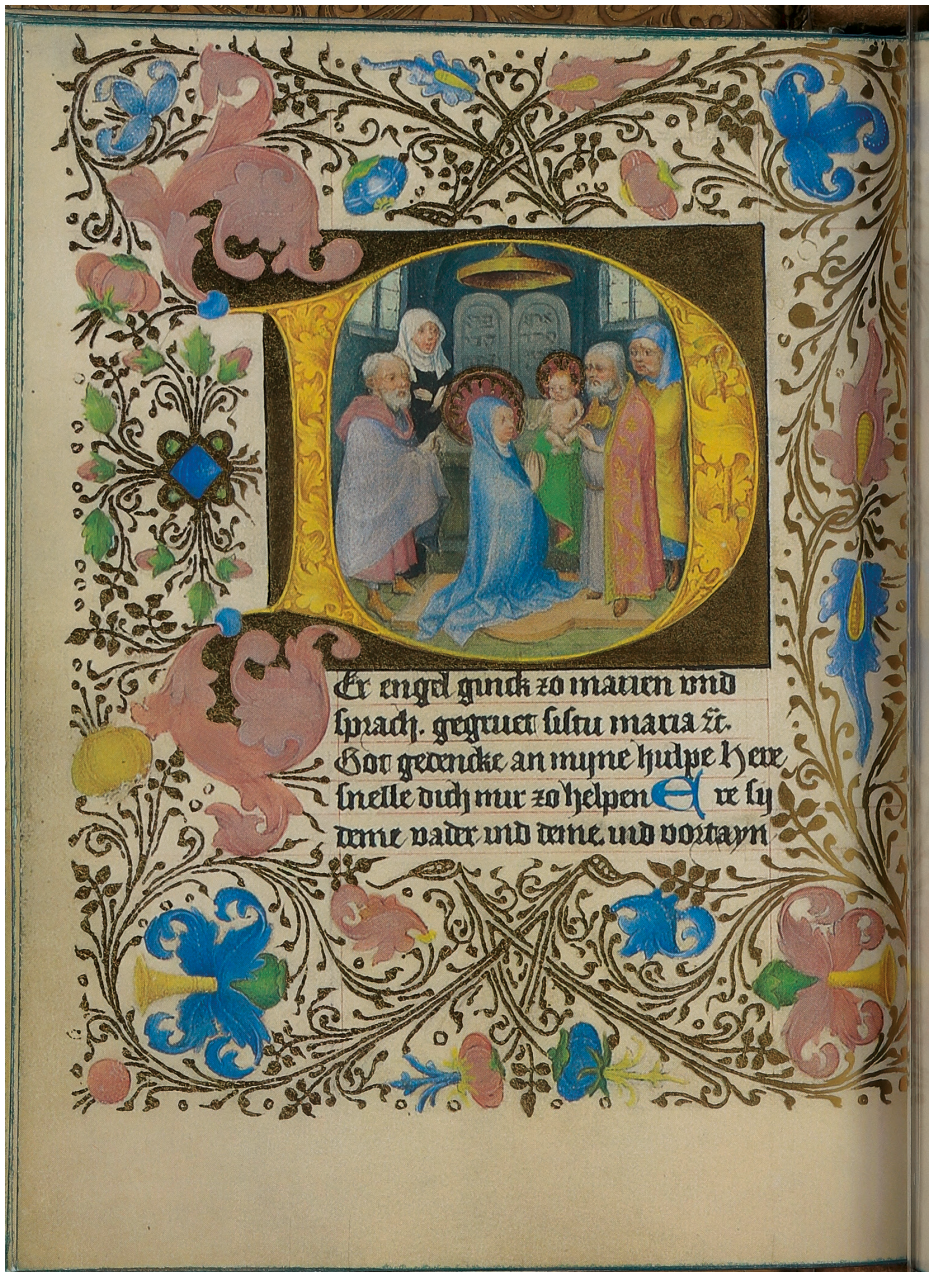 Er engel ginck zo marien vnd
sprach. gegruet sistu maria ⁊c̄.
Got gedencke an myne hulpe Here
snelle dich mir zo helpen Ere sy
deme vader vnd deme vnd vortayn